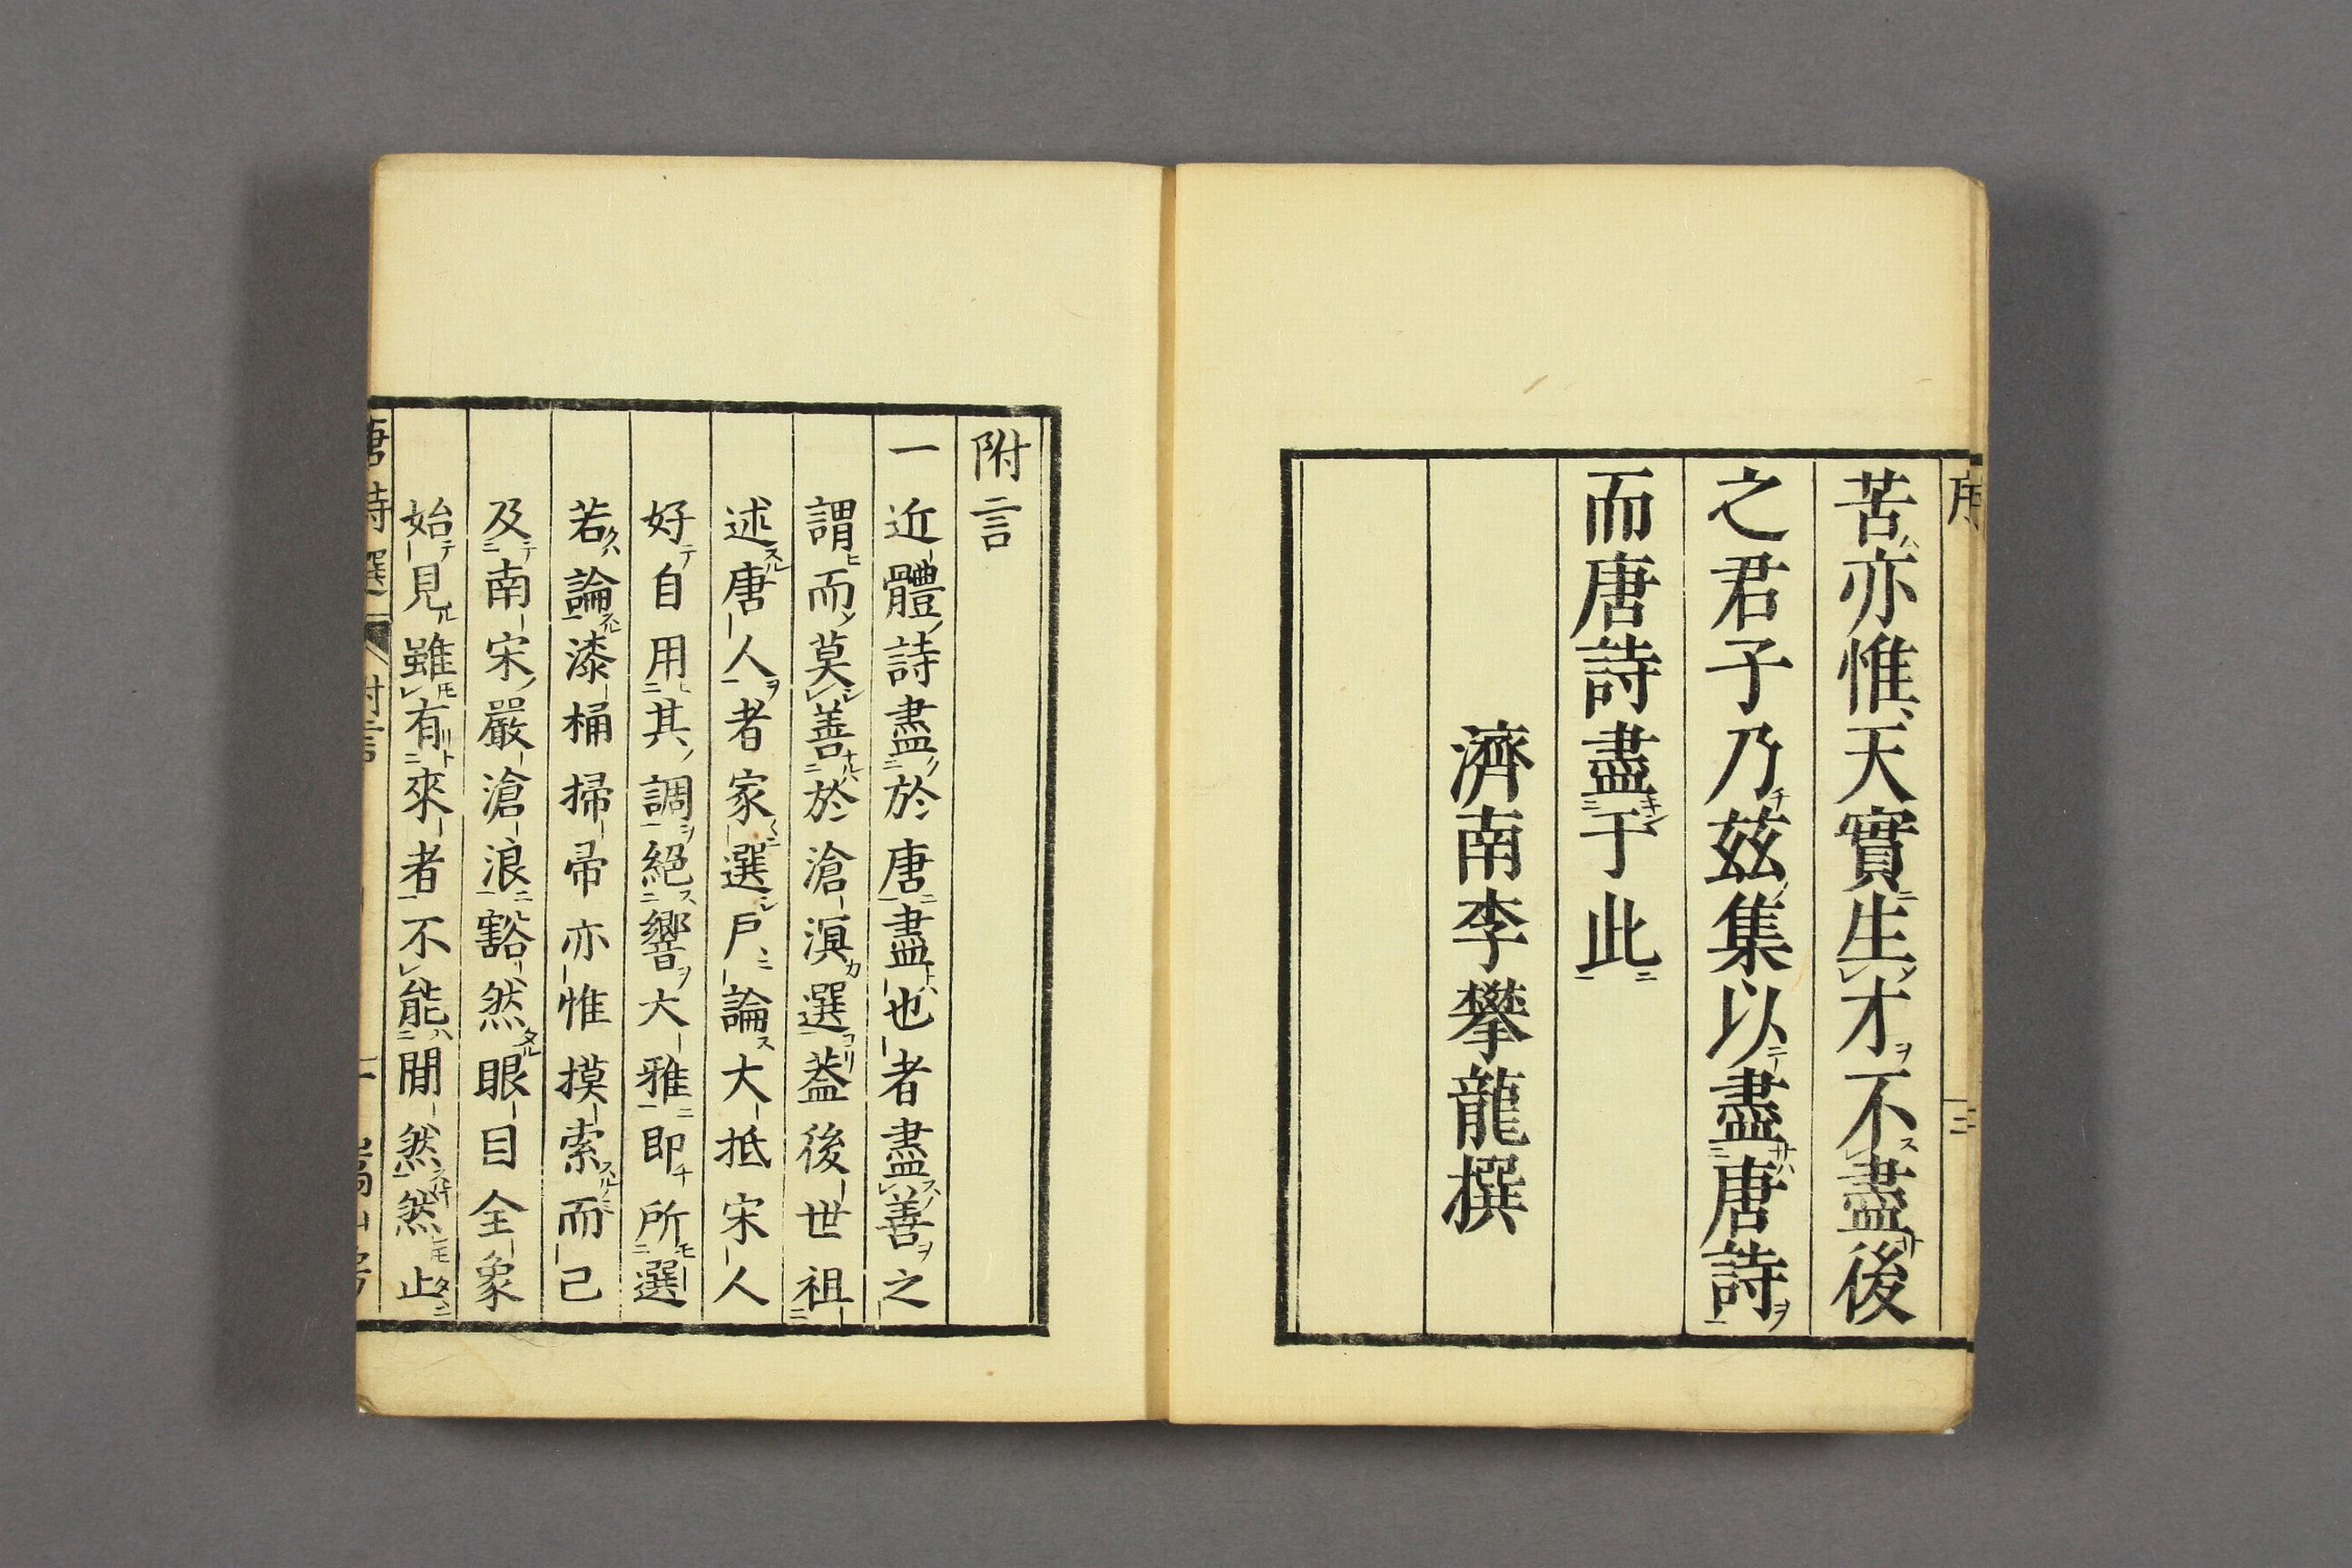 序
三
苦亦惟天實生才不盡後
之君子乃茲集以盡唐詩
而唐詩盡于此
濟南李攀龍撰
附言
一近體詩盡於唐盡也者盡善之
謂而莫善於滄溟選葢後世祖
述唐人者家選戶論大抵宋人
好自用其調絕響大雅即所選
若論漆桶掃帚亦惟摸索而已
及南宋嚴滄浪豁然眼目全象
始見雖有來者不能閒然然止
唐詩選 附言